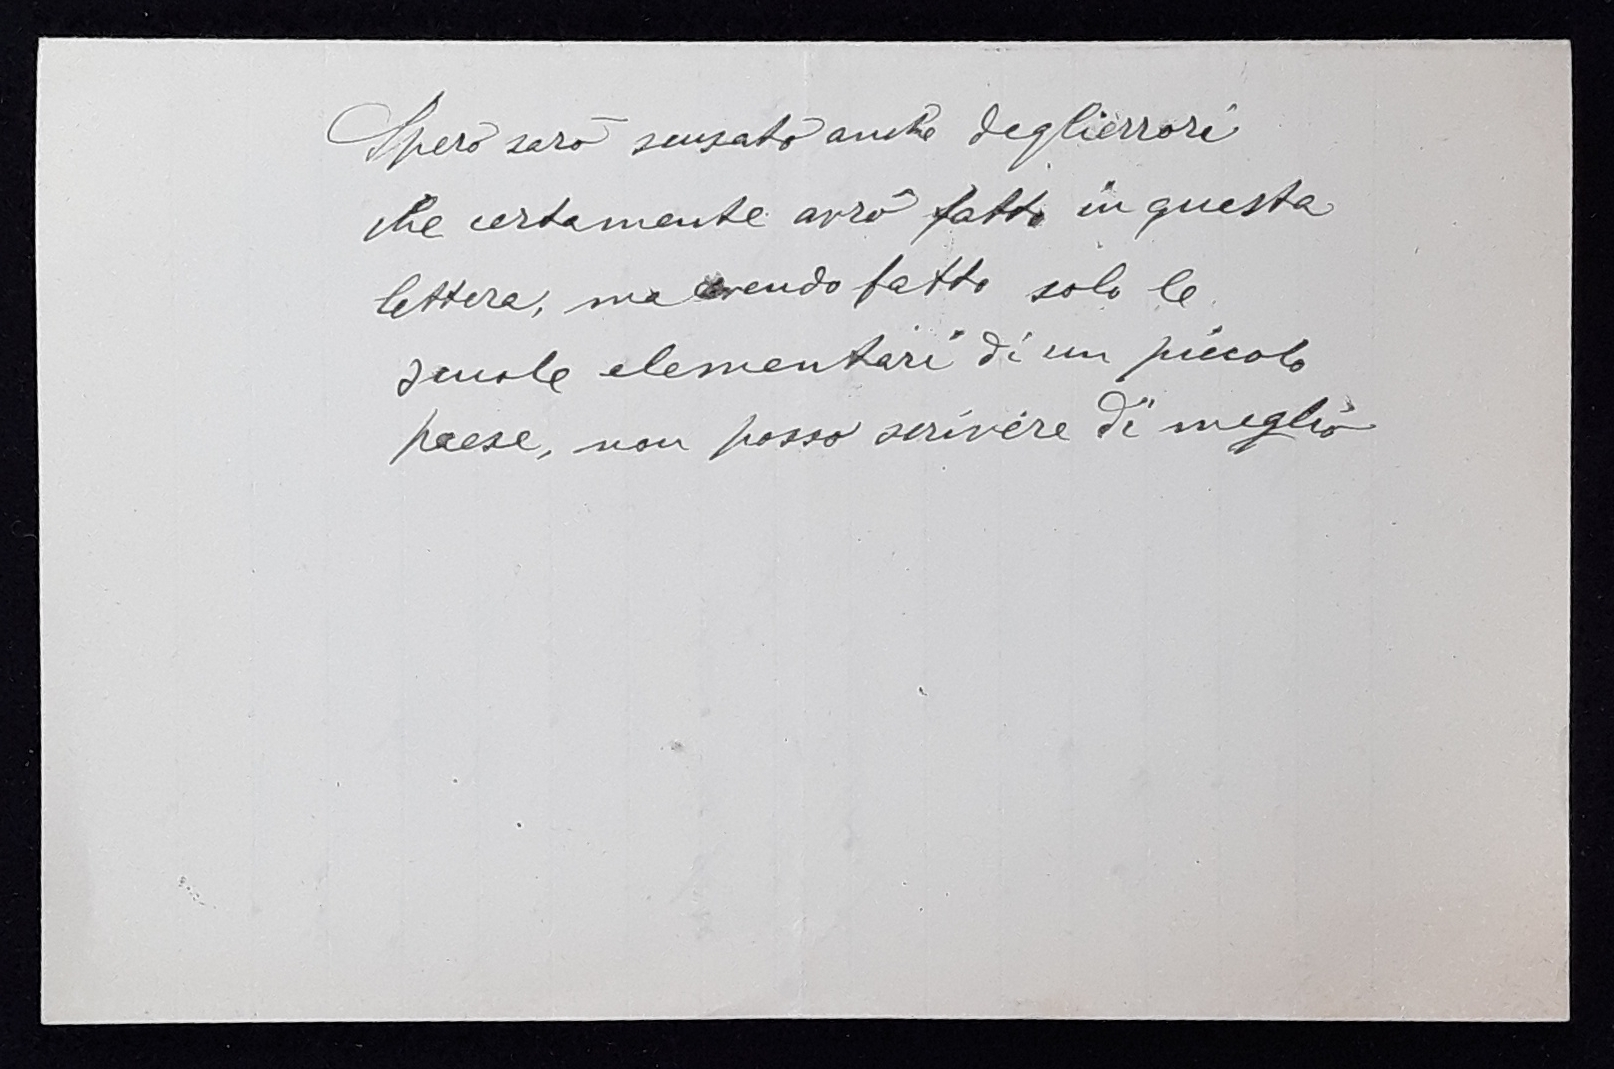 Spero sarò scusato anche deglierrori
che certamente avrò fatto in questa
lettera, ma avendo fatto solo le
scuole elementari di un piccolo
paese, non posso scrivere di meglio